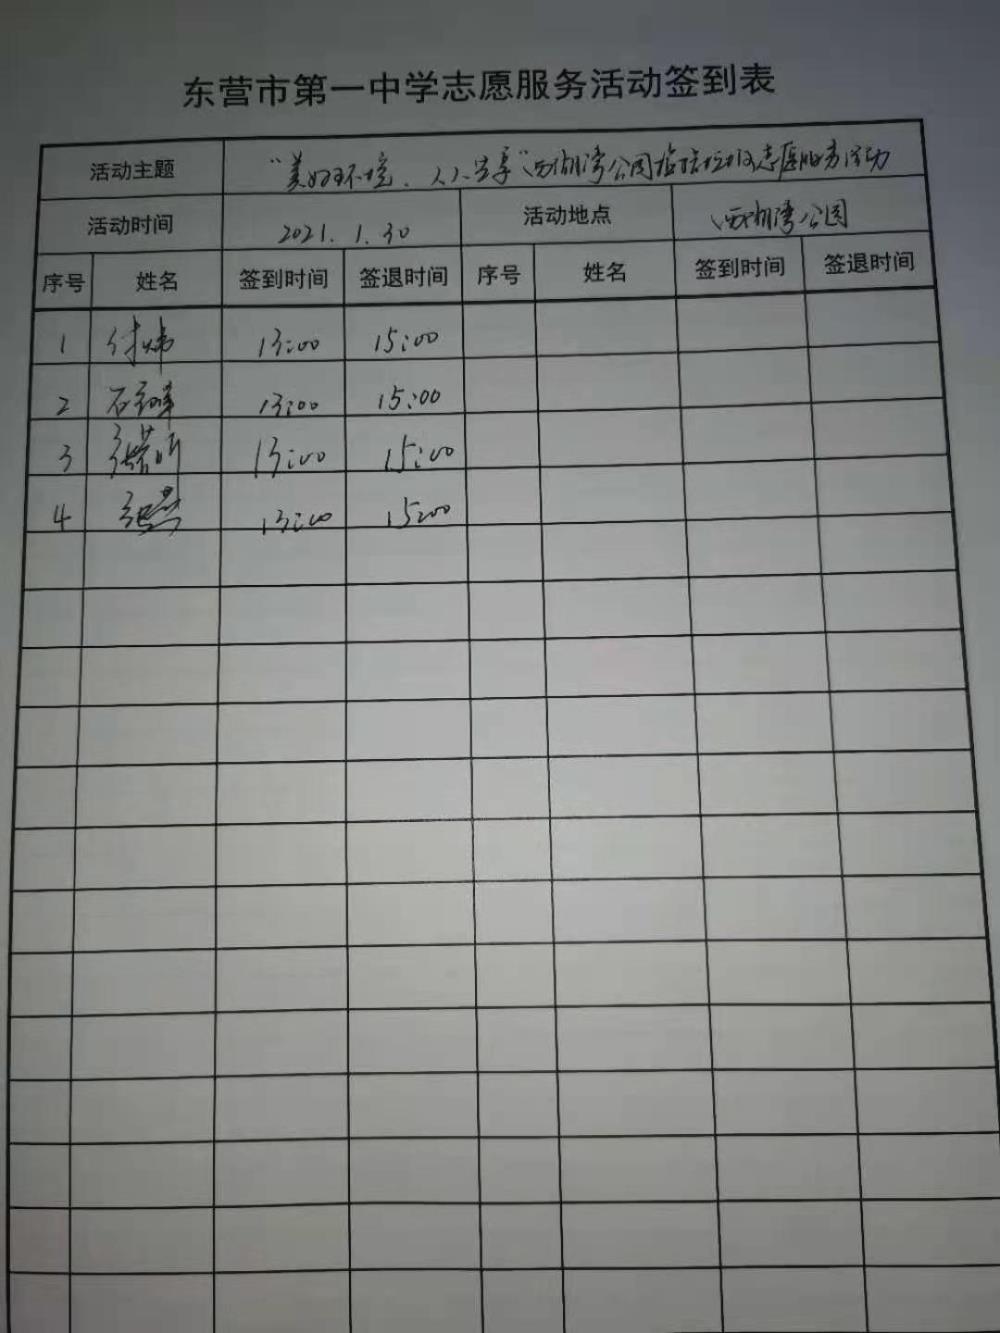 东营市第一中学志愿服务活动签到表
活动主题 “美好环境、人人共享”西湖湾公园捡拾垃圾志愿服务活动
活动时间 2021.1.30 活动地点 西湖湾公园
序号 姓名 签到时间 签退时间 序号 姓名 签到时间 签退时间
1 付炜 13:00 15:00
2 石 13:00 15:00
3 张 13:00 15:00
4 张 13:00 15:00